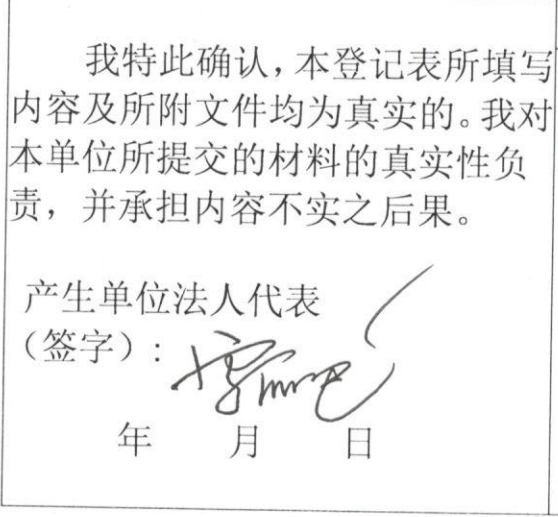 我特此确认，本登记表所填写
内容及所附文件均为真实的。我对
本单位所提交的材料的真实性负
责，并承担内容不实之后果。
产生单位法人代表
（签字）：
年 月 日